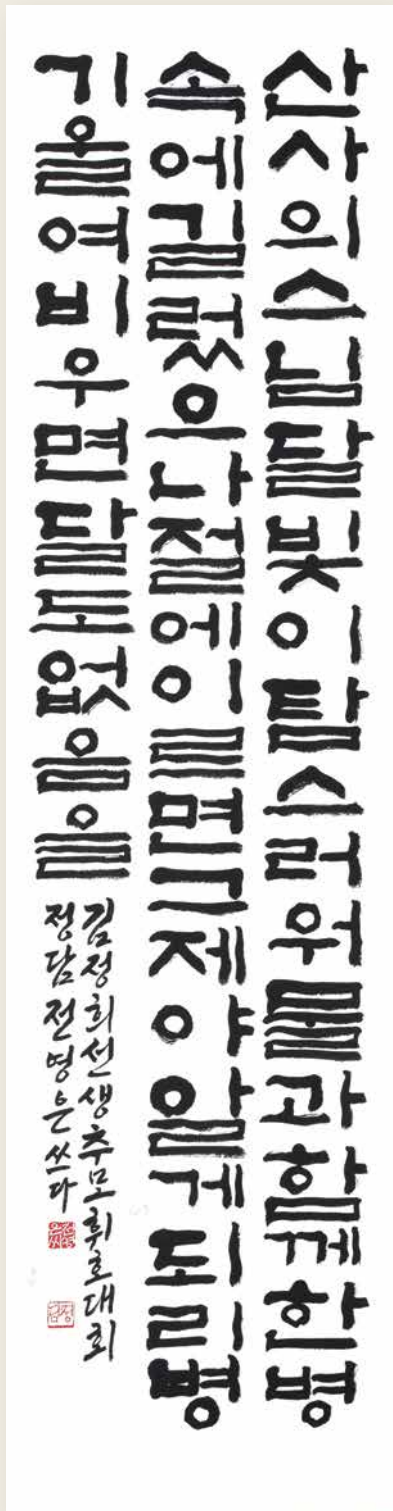 산사의스님달빛이탐스러워물과함께한병
속에길렀으나절에이르면그제야알게되리병
기울여비우면달도없음을
김정희선생추모휘호대회
정담전영은쓰다